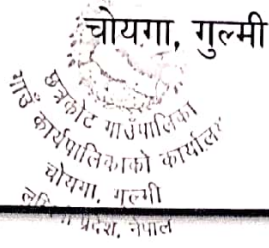 चोयगा, गुल्मी
छत्रकोट गाउँपालिका
गाउँ कार्यपालिकाको कार्यालय
चोयगा, गुल्मी
प्रदेश, नेपाल